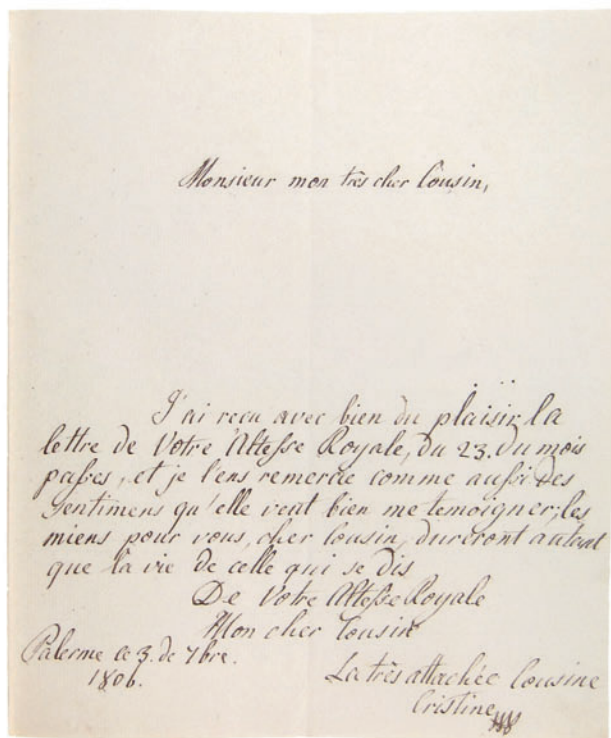 Monsieur mon très cher Cousin,
J'ai reçu avec bien du plaisir la
lettre de Votre Altesse Royale, du 23. du mois
passes, et je l'ens remercie comme aussi des
sentimens qu'elle veut bien me temoigner; les
miens pour vous, cher Cousin, dureront autant
que la vie de celle qui se dis
De Votre Altesse Royale
Mon cher Cousin
Palerme ce 3. de 7bre.
1806.
La très attachée Cousine
Cristine